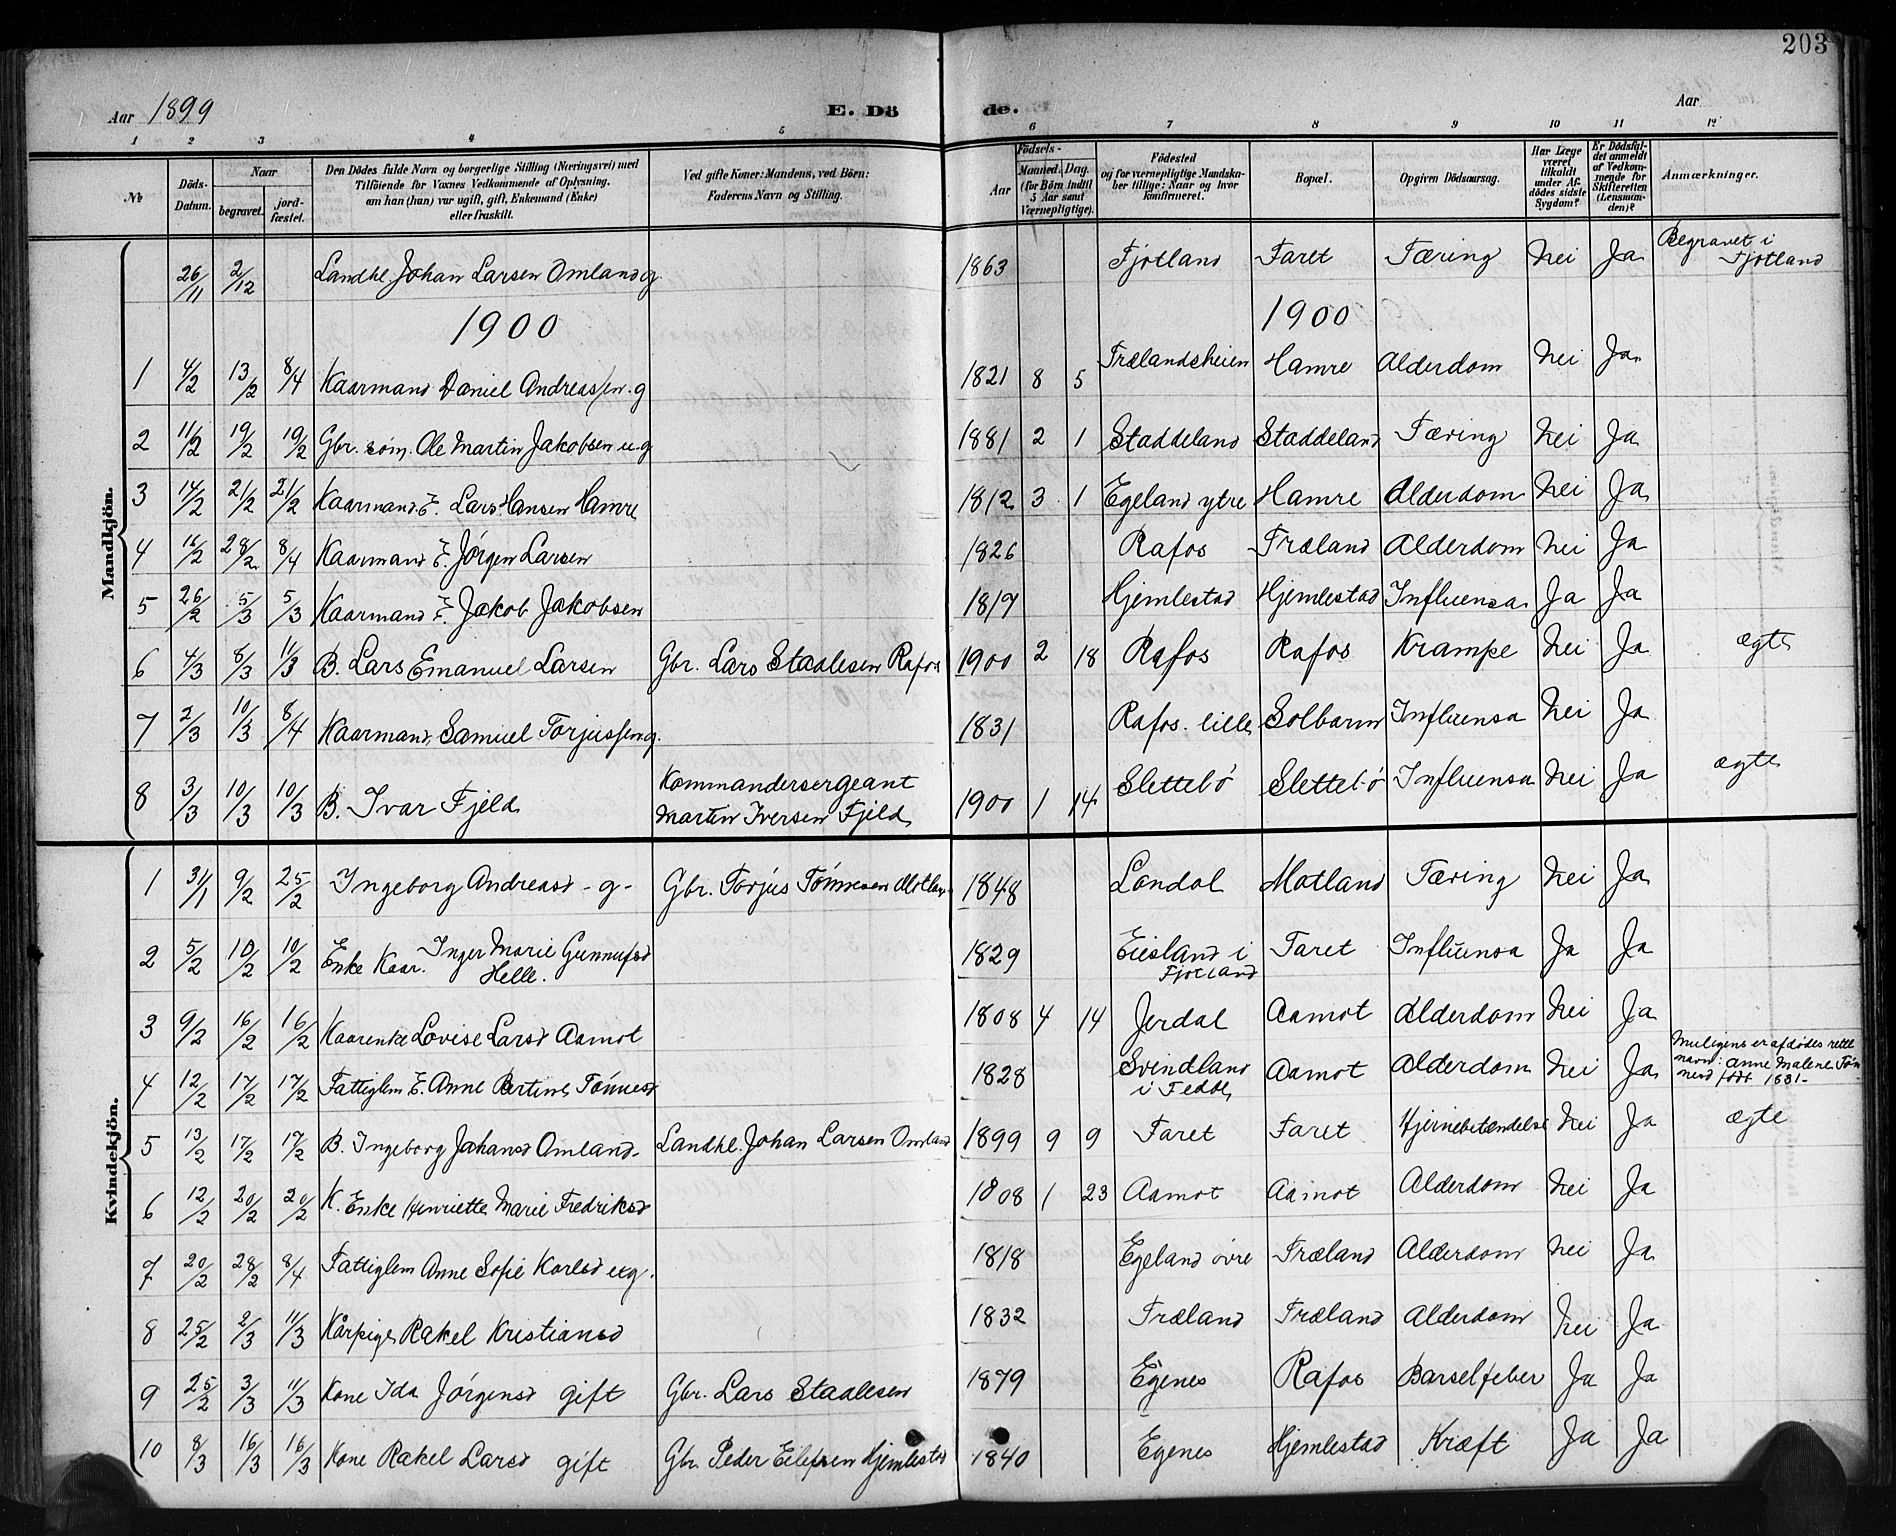 203
Aar 1899 E. Dö de. Aar
1 2 3 4 5 6 7 8 9 10 11 12
№ Döds-Datum. Naar begravet. jord-fæstet. Den Dödes fulde Navn og borgerlige Stilling (Næringsvei) med Tilföiende for Voxnes Vedkommende af Oplysning, om han (hun) var ugift, gift, Enkemand (Enke) eller fraskilt. Ved gifte Koner: Mandens, ved Börn: Faderens Navn og Stilling. Födsels- Aar Maaned. Dag. (for Börn indtil 5 Aar samt Værnepligtige). Födested og for værnepligtige Mandskaber tillige: Naar og hvor konfirmeret. Bopæl. Opgiven Dödsaarsag. Har Læge været tilkaldt under Afdödes sidste Sygdom? Er Dödsfaldet anmeldt af Vedkommende for Skifteretten (Lensmanden)? Anmærkninger.
Mandkjön.
26/11 2/12 Landhl. Johan Larsen Omland g. 1863 Fjotland Faret Tæring Nei Ja Begravet i Fjotland
1900 1900
1 4/2 13/2 8/4 Kaarmand Daniel Andreassen. g 1821 8 5 Trælandsheien Hamre Alderdom Nei Ja
2 11/2 19/2 19/2 Gbr. søm. Ole Martin Jakobsen u.g 1881 2 1 Staddeland Staddeland Tæring Nei Ja
3 14/2 21/2 21/2 Kaarmand E. Lars Hansen Hamre 1812 3 1 Egeland ytre Hamre Alderdom Nei Ja
4 16/2 28/2 8/4 Kaarmand E. Jørgen Larsen 1826 Rafos Træland Alderdom Nei Ja
5 26/2 5/3 5/3 Kaarmand E. Jakob Jakobsen 1817 Hjemlestad Hjemlestad Influensa Ja Ja
6 4/3 8/3 11/3 B. Lars Emanuel Larsen Gbr. Lars Staalesen Rafos 1900 2 18 Rafos Rafos Krampe Nei Ja ægte
7 2/3 10/3 8/4 Kaarmand, Samuel Torjussen g. 1831 Rafos. lille Solbarm Influensa Nei Ja
8 3/3 10/3 10/3 B. Ivar Fjeld Kommandersergeant Martin Iversen Fjeld 1900 1 14 Slettebø Slettebø Influensa Nei Ja ægte
Kvindekjön.
1 31/1 9/2 25/2 Ingeborg Andreasd - g - Gbr. Torjus Tønnesen Motland 1848 Londal Motland Tæring Nei Ja
2 5/2 10/2 10/2 Enke Kaar. Inger Marie Gunnufsd Helle. 1829 Eiesland i Fjotland Faret Influensa Ja Ja
3 9/2 16/2 16/2 Kaarenke Lovise Larsd Aamot 1808 4 14 Jerdal Aamot Alderdom Nei Ja
4 12/2 17/2 17/2 Fattiglem E. Anne Bertine Tønnesd 1828 Svindland i Fedde Aamot Alderdom Nei Ja Muligens er afdødes rette navn: Anne Malene Tønnesd født 1831-
5 13/2 17/2 17/2 B. Ingeborg Johansd Omland. Landhl. Johan Larsen Omland 1899 9 9 Faret Faret Hjernebetændelse Nei Ja ægte
6 12/2 20/2 20/2 K. Enke Henriette Marie Fredriksd 1808 1 23 Aamot Aamot Alderdom Nei Ja
7 20/2 28/2 8/4 Fattiglem Anne Sofie Karlsd ug. 1818 Egeland øvre Træland Alderdom Nei Ja
8 25/2 2/3 11/3 Kårpige Rakel Kristiansd 1832 Træland Træland Alderdom Nei Ja
9 25/2 3/3 11/3 Kone Ida Jørgensd gift Gbr. Lars Staalesen 1879 Egenes Rafos Barselfeber Ja Ja
10 8/3 16/3 16/3 Kone Rakel Larsd gift Gbr. Peder Eilefsen Hjemlestad 1840 Egenes Hjemlestad Kræft Ja Ja